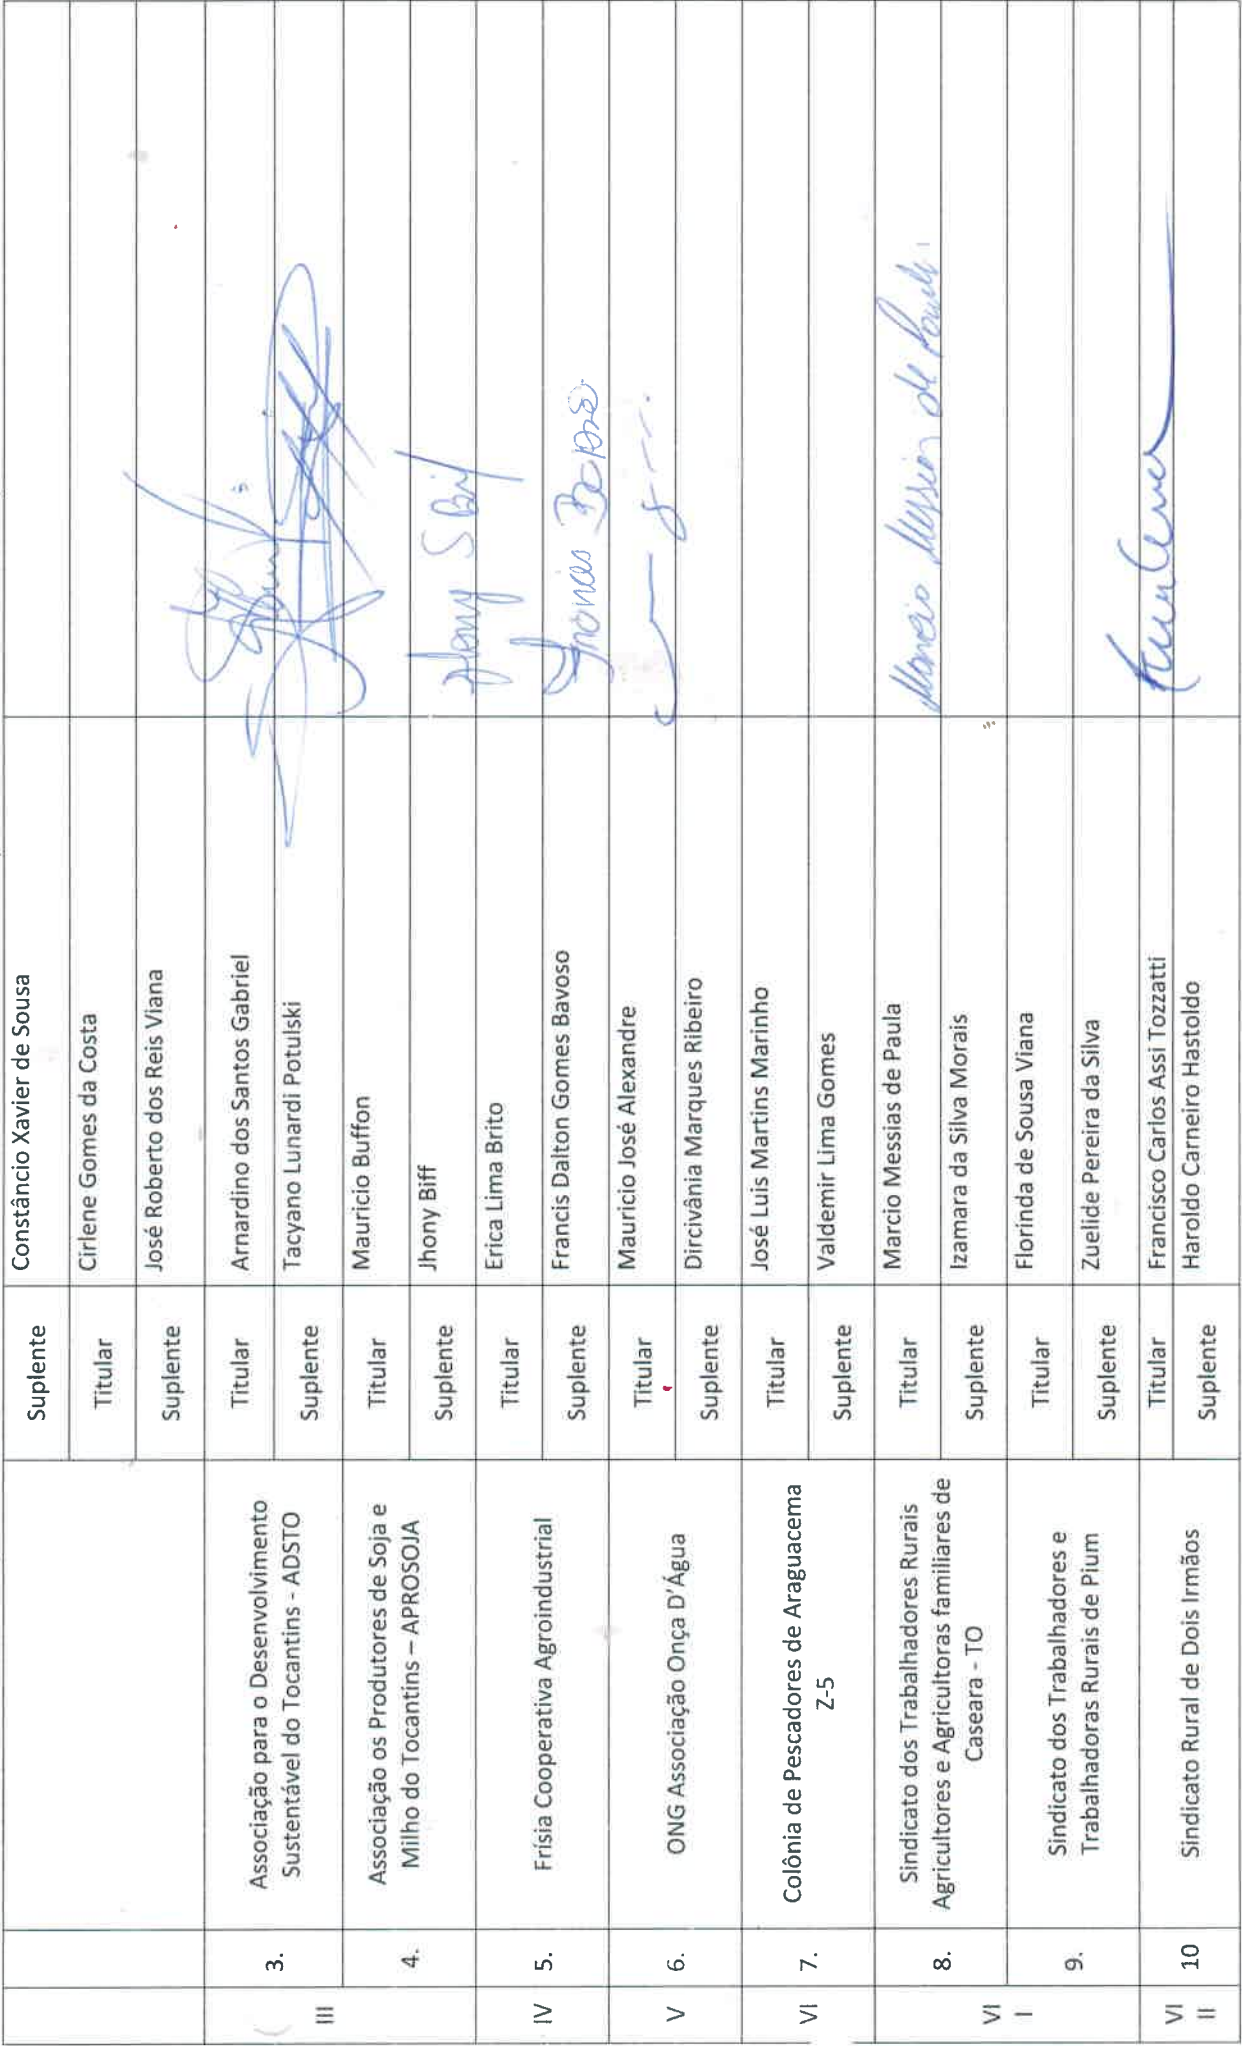 Suplente Constâncio Xavier de Sousa
Titular Cirlene Gomes da Costa
Suplente José Roberto dos Reis Viana
III 3. Associação para o Desenvolvimento
Sustentável do Tocantins - ADSTO
Titular Arnardino dos Santos Gabriel
Suplente Tacyano Lunardi Potulski
4. Associação os Produtores de Soja e
Milho do Tocantins – APROSOJA
Titular Mauricio Buffon
Suplente Jhony Biff Jhony S Biff
IV 5. Frísia Cooperativa Agroindustrial
Titular Erica Lima Brito
Suplente Francis Dalton Gomes Bavoso Francis Bavoso
V 6. ONG Associação Onça D'Água
Titular Mauricio José Alexandre
Suplente Dircivânia Marques Ribeiro
VI 7. Colônia de Pescadores de Araguacema
Z-5
Titular José Luis Martins Marinho
Suplente Valdemir Lima Gomes
VI
I
8. Sindicato dos Trabalhadores Rurais
Agricultores e Agricultoras familiares de
Caseara - TO
Titular Marcio Messias de Paula Marcio Messias de Paula
Suplente Izamara da Silva Morais
9. Sindicato dos Trabalhadores e
Trabalhadoras Rurais de Pium
Titular Florinda de Sousa Viana
Suplente Zuelide Pereira da Silva
VI
II
10 Sindicato Rural de Dois Irmãos
Titular Francisco Carlos Assi Tozzatti
Suplente Haroldo Carneiro Hastoldo